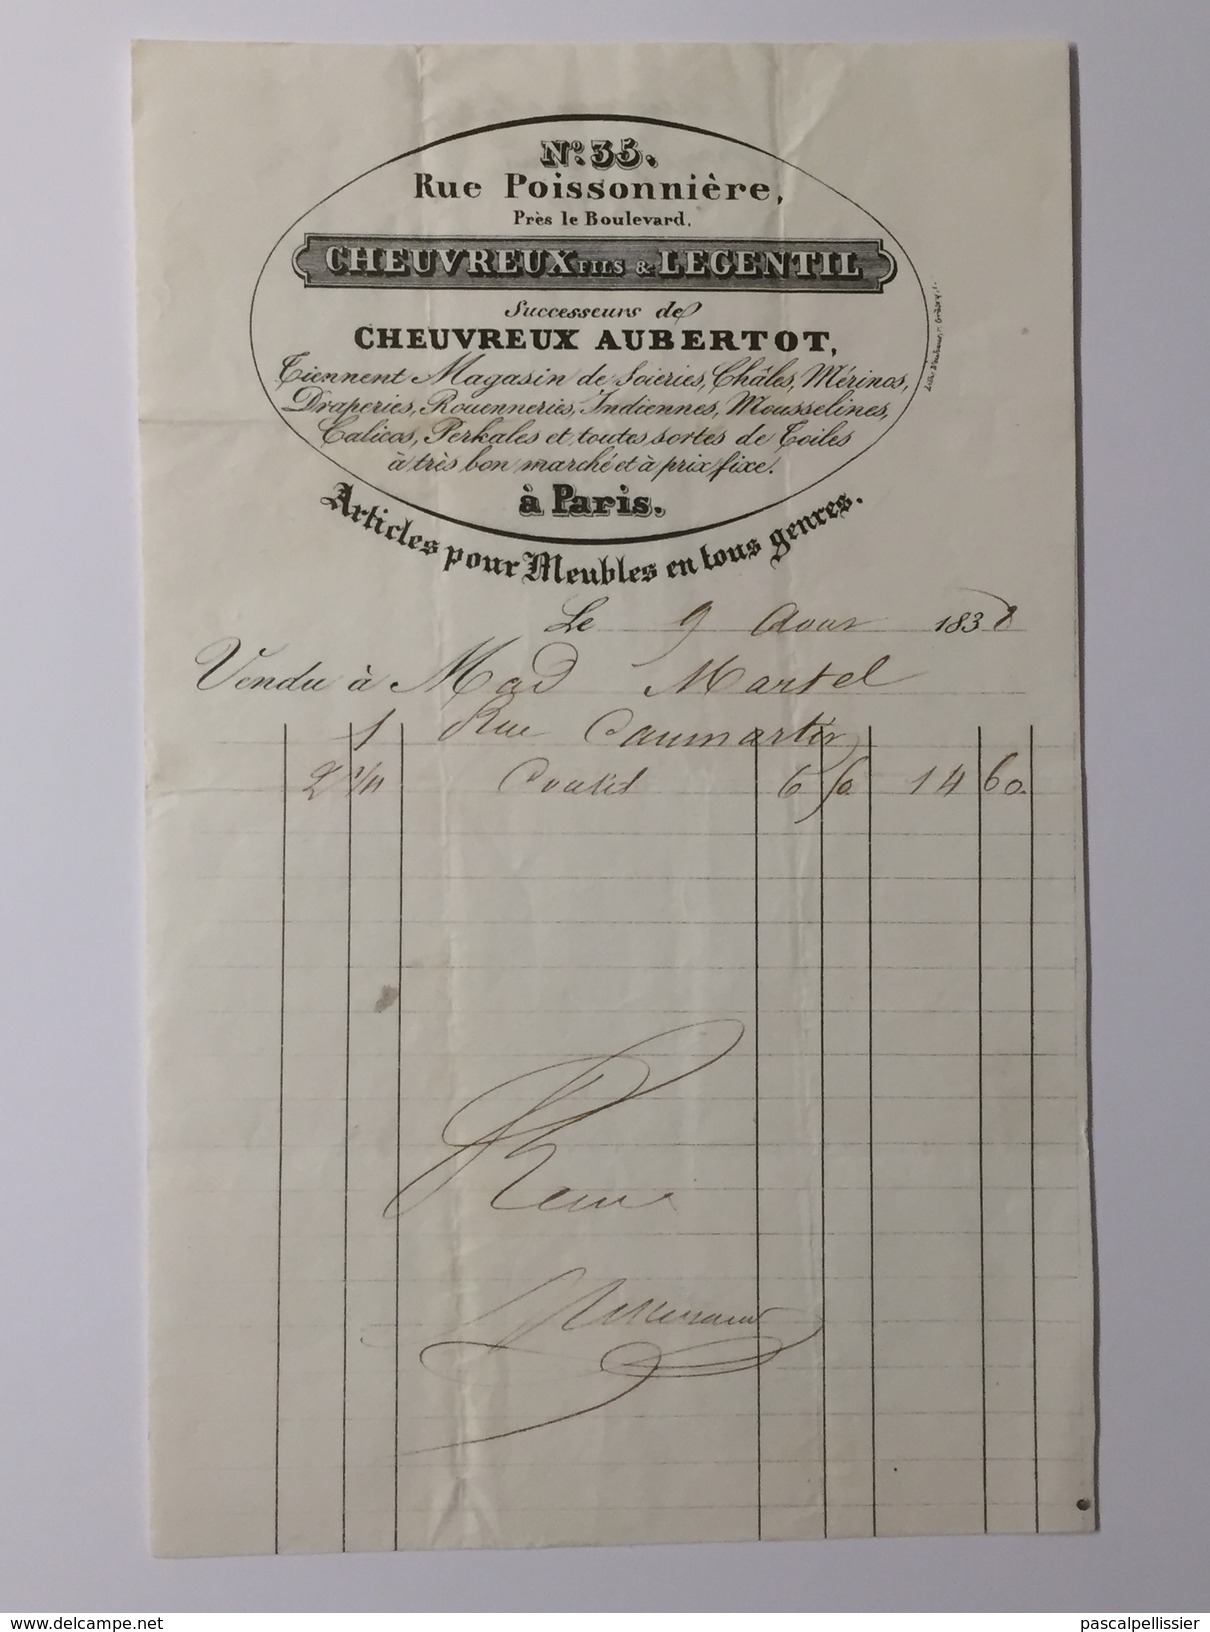 Nº 35.
Rue Poissonnière,
Près le Boulevard,
CHEUVREUX FILS & LEGENTIL
Successeurs de
CHEUVREUX AUBERTOT,
Tiennent Magasin de Soieries, Châles, Mérinos,
Draperies, Rouenneries, Indiennes, Mousselines,
Calicos, Perkales et toutes sortes de Toiles
à très bon marché et à prix fixe.
à Paris.
Articles pour Meubles en tous genres.
Le 9 Aout 1838
Vendu à Mad Martel
1 Rue Caumartin
2 Coutil 6 50 14 60
delcampe.net
pascalpellissier